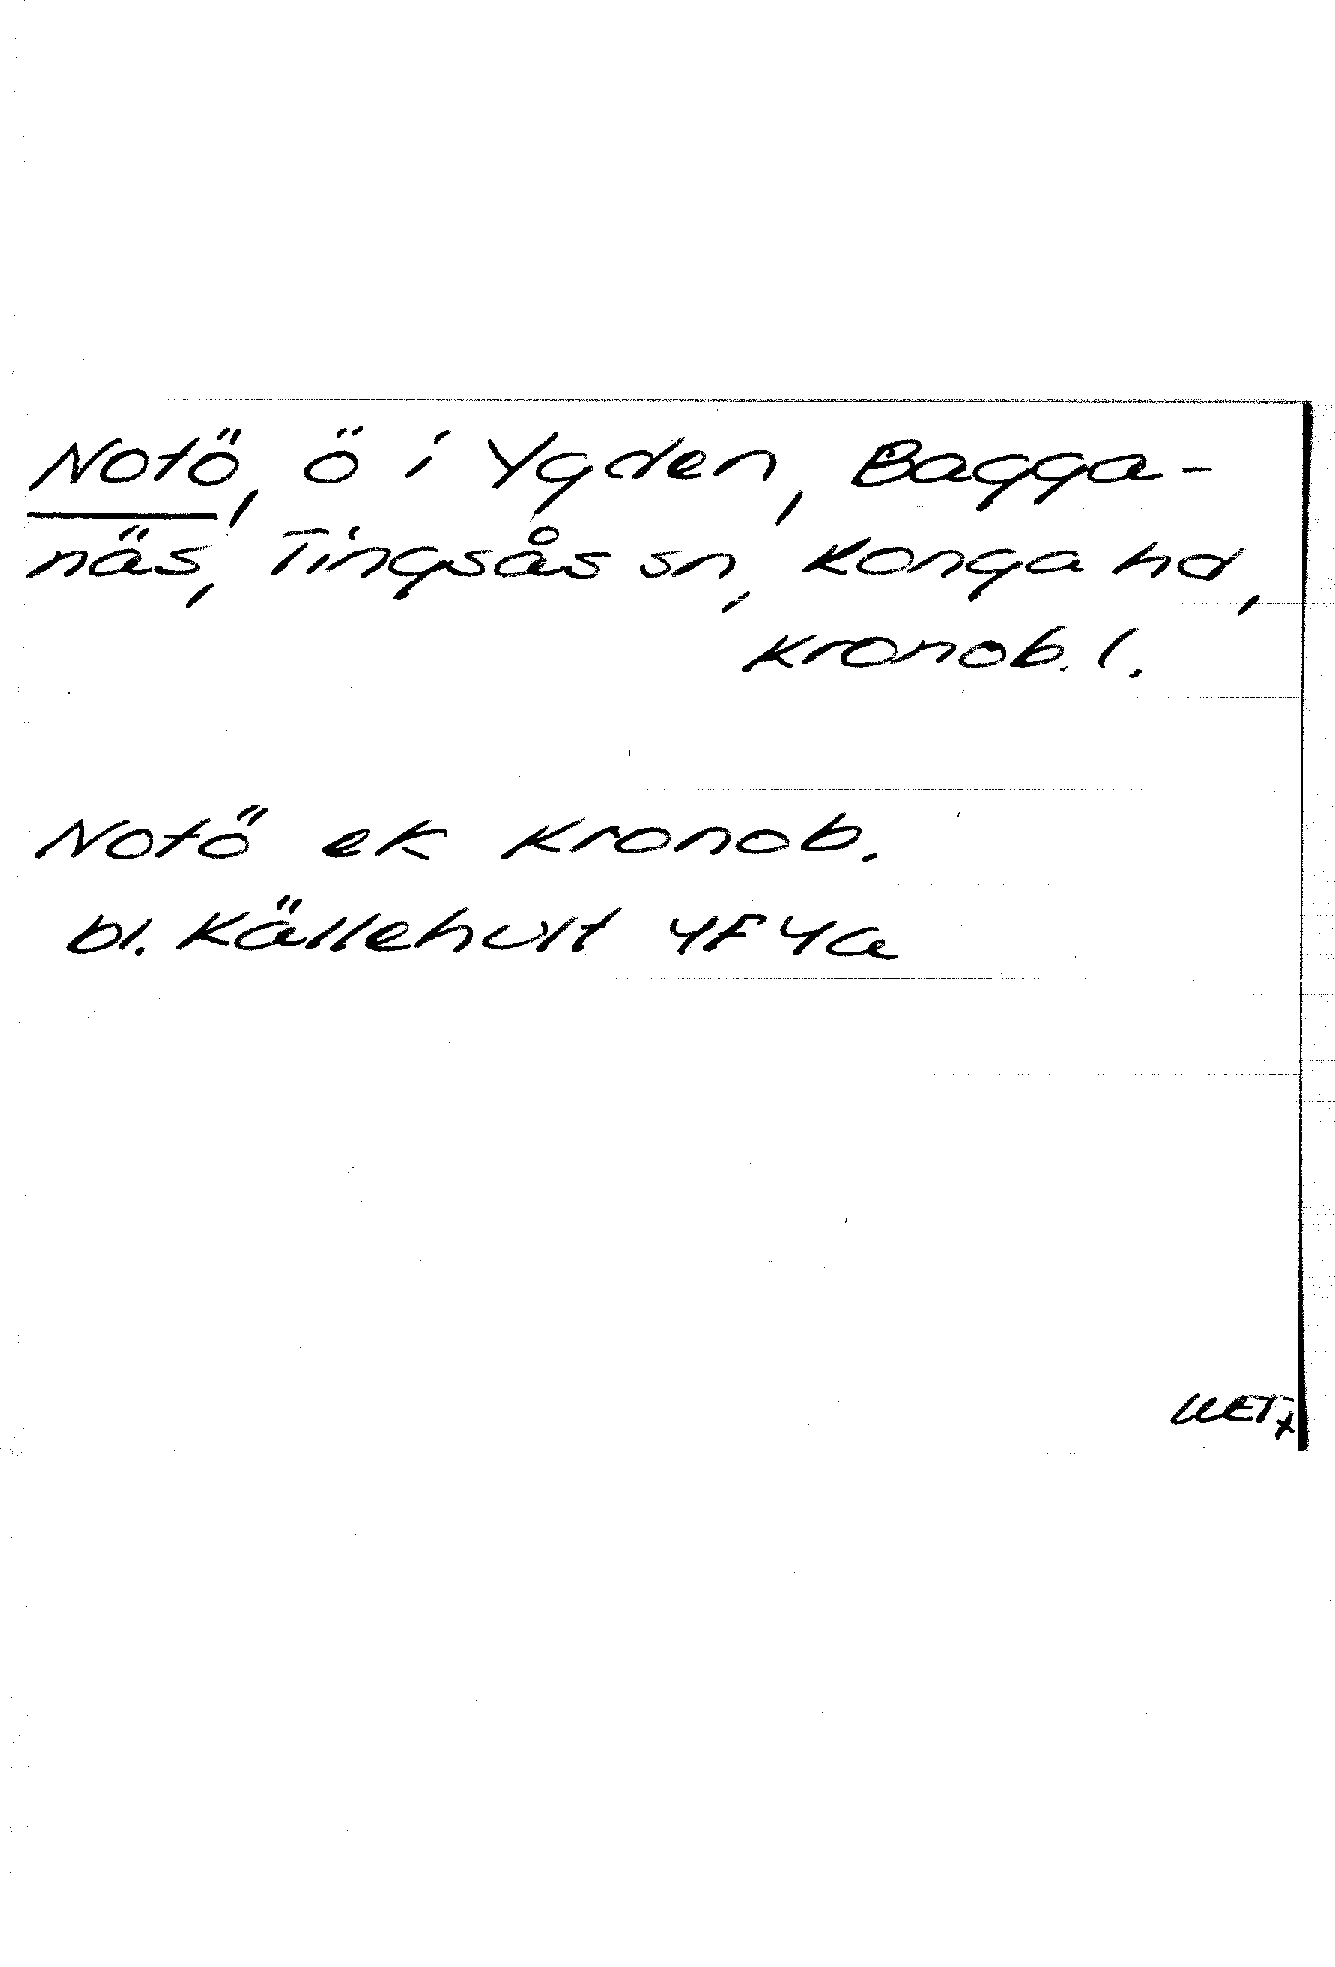 Notö, ö i Ygden, Bagga-
näs, Tingsås sn, Konga hd,
Kronob. l.
Notö ek Kronob.
bl. Källehult 4F4a